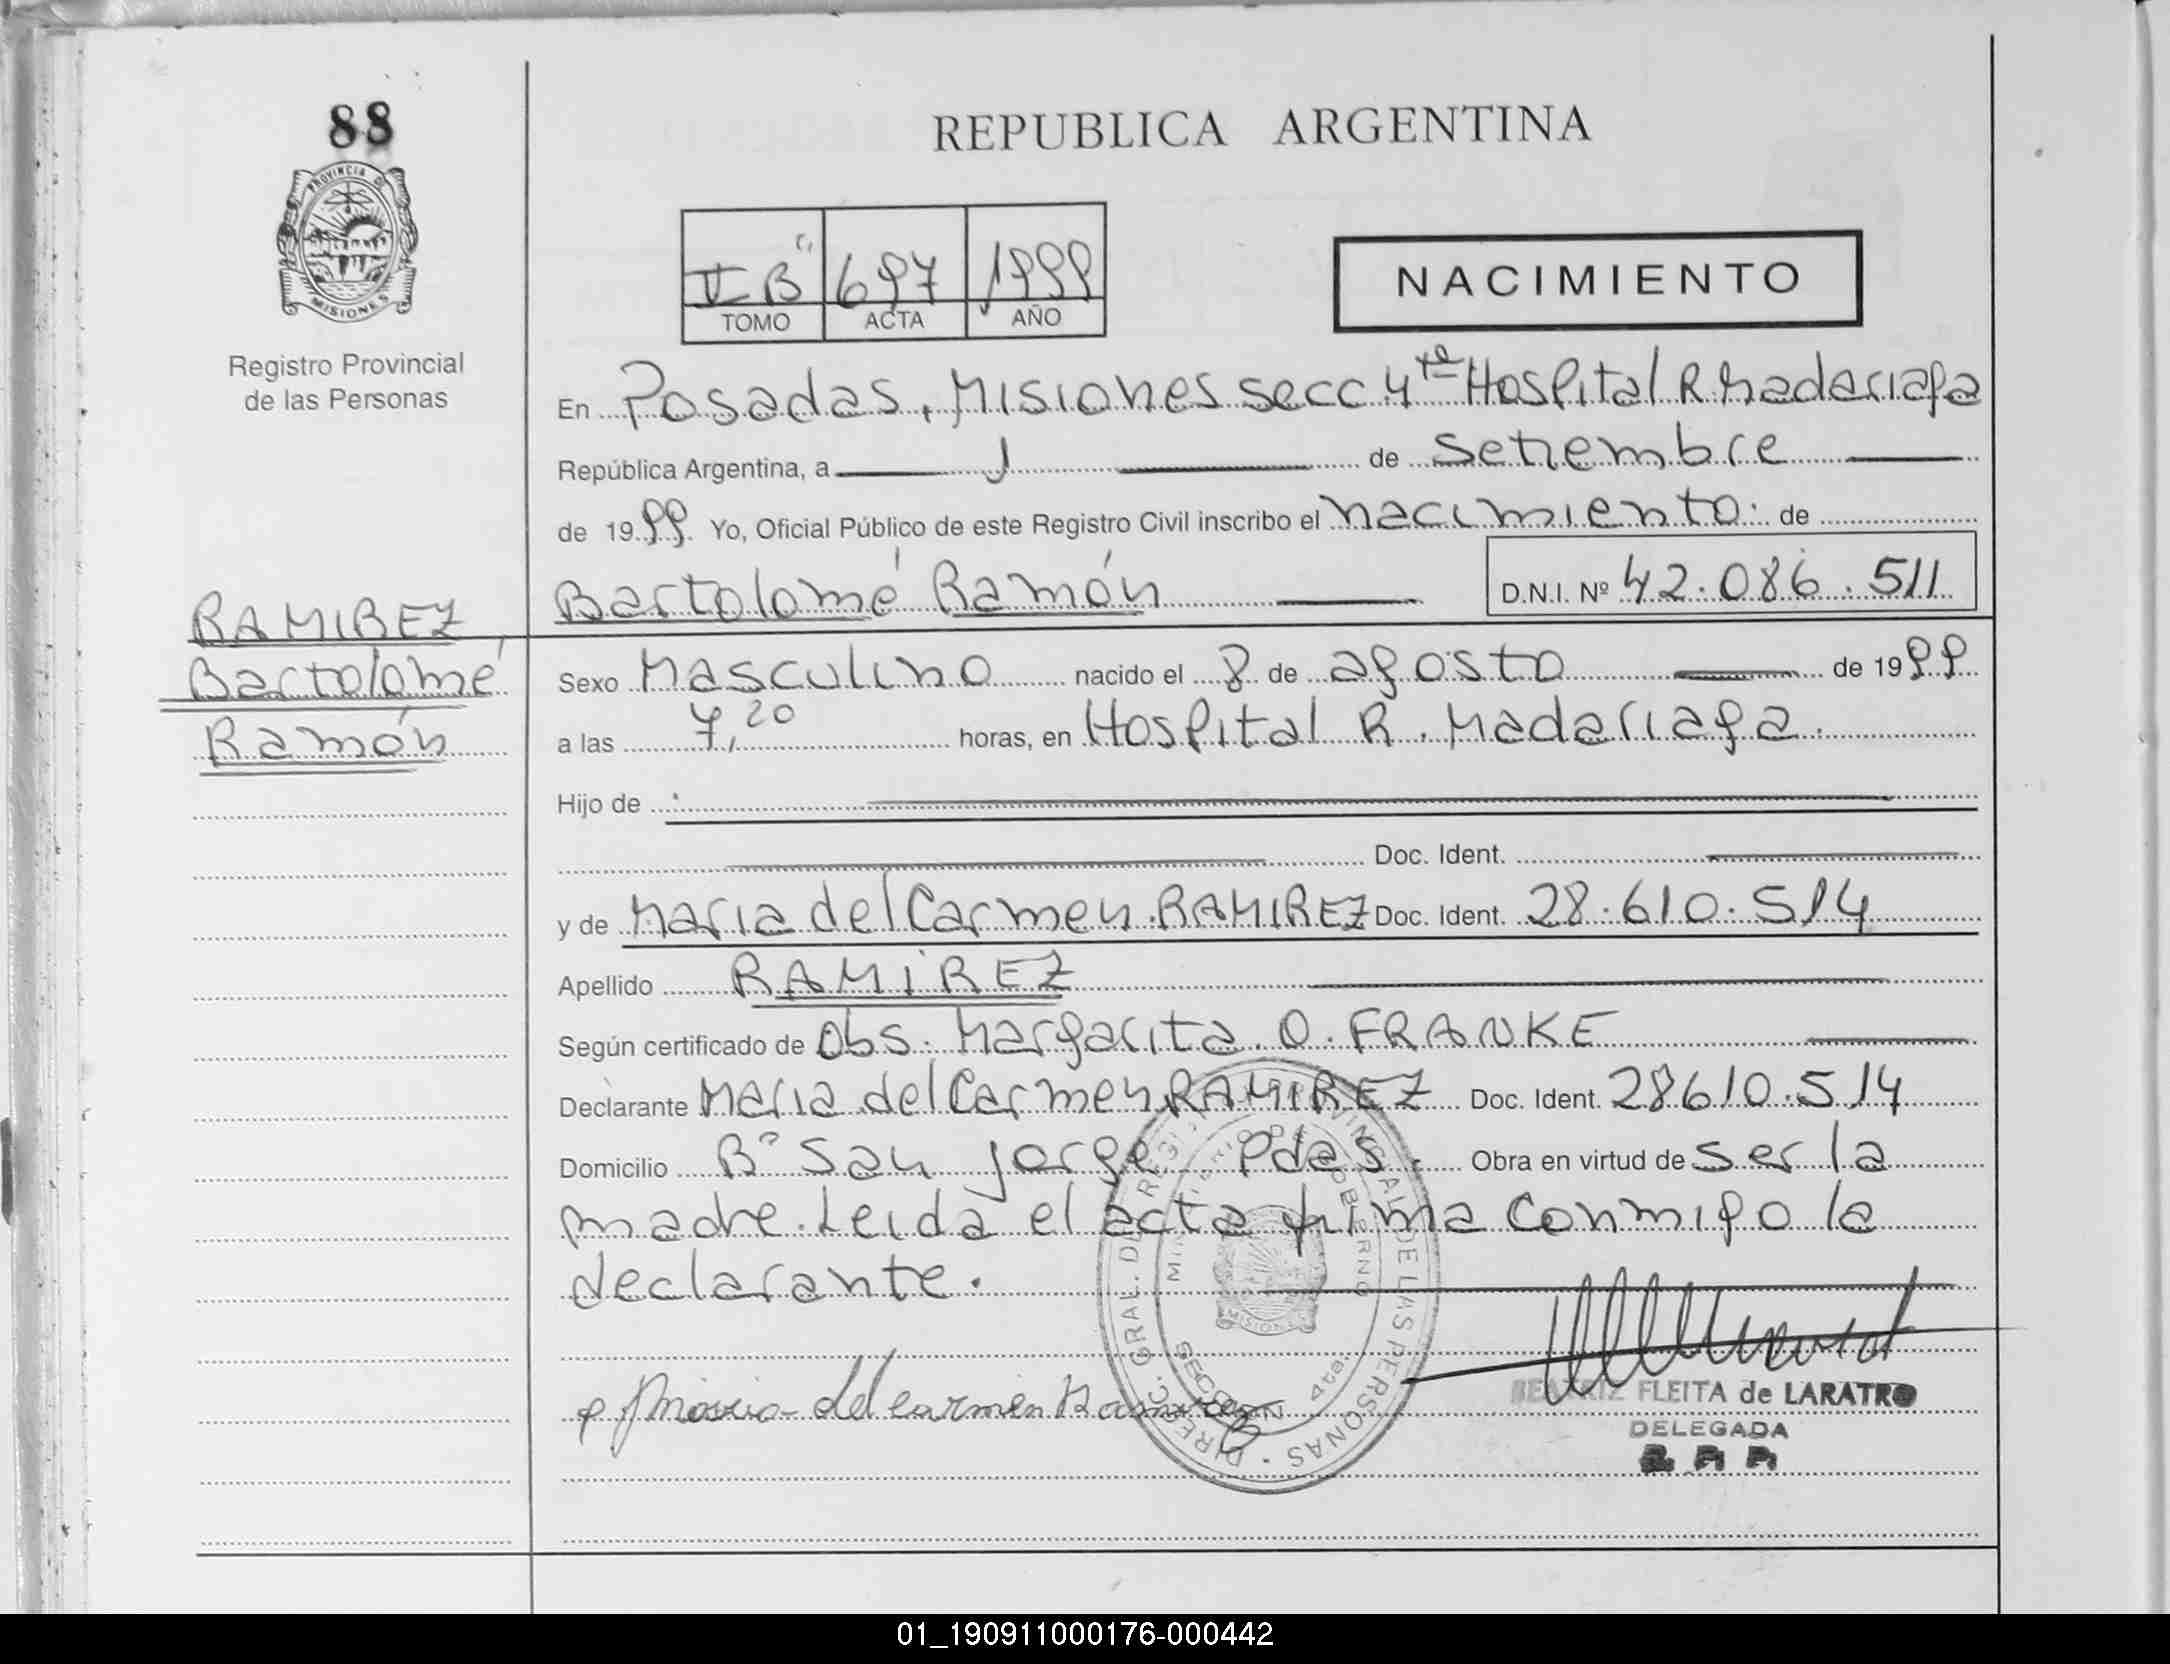 88
REPUBLICA ARGENTINA
PROVINCIA D
MISIONES
Registro Provincial
de las Personas
B" 697 1999
TOMO ACTA AÑO
NACIMIENTO
En Posadas, Misiones secc 4ta Hospital R Madariaga
República Argentina, a de Setiembre
de 1999. Yo, Oficial Público de este Registro Civil inscribo el nacimiento. de
Bartolomé Ramón D.N.I. Nº 42.086.511
RAMIREZ,
Bartolomé
Ramón
Sexo Masculino nacido el 8 de agosto de 1999
a las 7,20 horas, en Hospital R. Madariaga.
Hijo de
Doc. Ident.
y de Maria del Carmen RAMIREZ Doc. Ident. 28.610.514
Apellido RAMIREZ
Según certificado de Obs. Margarita O. FRANKE
Declarante Maria del Carmen RAMIREZ Doc. Ident. 28610.514
Domicilio Bº San Jorge Pdas. Obra en virtud de ser la
madre. Leida el acta firma conmigo la
declarante.
Maria del carmen Ramirez
DIREC. GRAL. DE REGISTRO PROVINCIAL DE LAS PERSONAS
MINISTERIO DE GOBIERNO
MISIONES
SECCION 4ta.
BEATRIZ FLEITA de LARATRO
DELEGADA
01_190911000176-000442